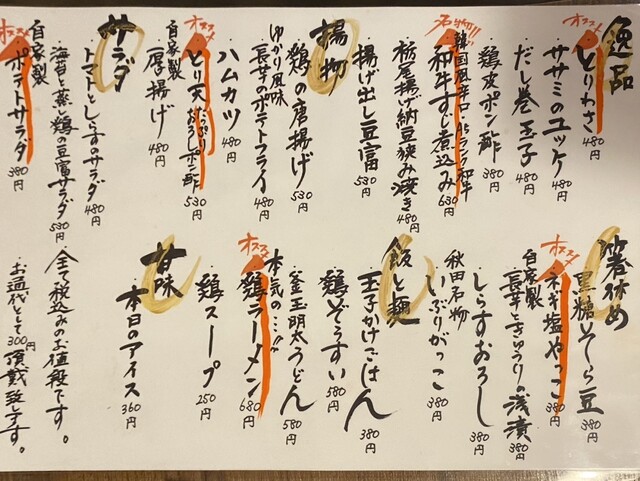 逸品
オススメ
・とりわさ 480円
・ササミのユッケ 480円
・だし巻玉子 480円
・鶏皮ポン酢 380円
名物!!
韓国風辛口・A5ランク和牛
・和牛すじ煮込み 630円
・栃尾揚げ納豆挟み焼き 480円
・揚げ出し豆富 530円
揚物
・鶏の唐揚げ 530円
ゆかり風味
・長芋のポテトフライ 480円
・ハムカツ 480円
オススメ
・とり天 たっぷりおろしポン酢 530円
自家製
・厚揚げ 480円
サラダ
・トマトとしらすのサラダ 480円
・海苔と蒸し鶏の豆富サラダ 530円
オススメ
自家製
・ポテトサラダ 380円
箸休め
・黒糖そら豆 380円
オススメ
・ネギ塩やっこ 380円
自家製
・長芋ときゅうりの浅漬 380円
・しらすおろし 380円
秋田名物
・いぶりがっこ 380円
飯と麺
・玉子かけごはん 380円
・鶏ぞうすい 580円
・釜玉明太うどん 580円
オススメ
本気の…!!
・鶏ラーメン 680円
・鶏スープ 250円
甘味
・本日のアイス 360円
・全て税込みのお値段です。
・お通代として300円頂戴致します。